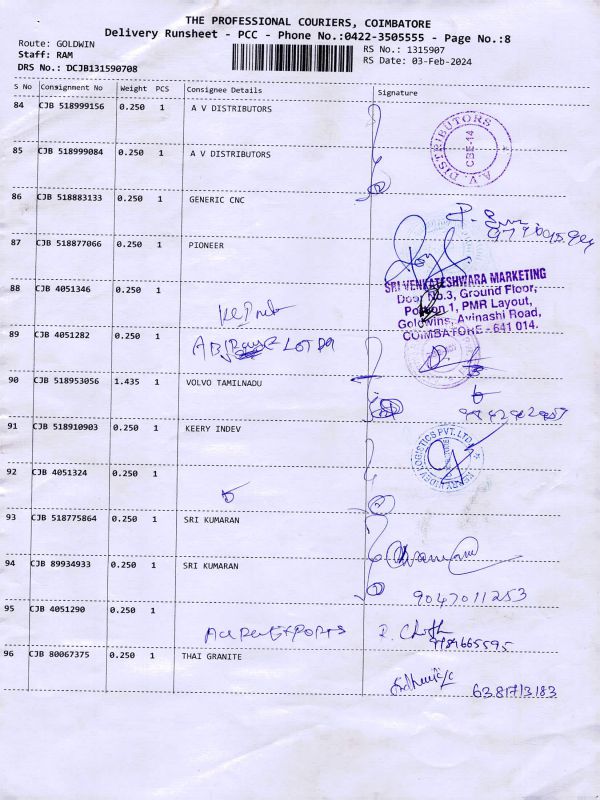 THE PROFESSIONAL COURIERS, COIMBATORE
Delivery Runsheet - PCC - Phone No.:0422-3505555 - Page No.:8
Route: GOLDWIN
RS No.: 1315907
Staff: RAM
RS Date: 03-Feb-2024
DRS No.: DCJB131590708
S No Consignment No Weight PCS Consignee Details Signature
84 CJB 518999156 0.250 1 A V DISTRIBUTORS
A.V. DISTRIBUTORS
CBE-14
85 CJB 518999084 0.250 1 A V DISTRIBUTORS
86 CJB 518883133 0.250 1 GENERIC CNC
87 CJB 518877066 0.250 1 PIONEER
88 CJB 4051346 0.250 1
SRI VENKATESHWARA MARKETING
Door No.3, Ground Floor,
Portion 1, PMR Layout,
Goldwins, Avinashi Road,
COIMBATORE - 641 014.
89 CJB 4051282 0.250 1
90 CJB 518953056 1.435 1 VOLVO TAMILNADU
91 CJB 518910903 0.250 1 KEERY INDEV
LOGISTICS PVT. LTD.
92 CJB 4051324 0.250 1
93 CJB 518775864 0.250 1 SRI KUMARAN
94 CJB 89934933 0.250 1 SRI KUMARAN
9047011253
95 CJB 4051290 0.250 1
EXPORTS
96 CJB 80067375 0.250 1 THAI GRANITE
6381713183